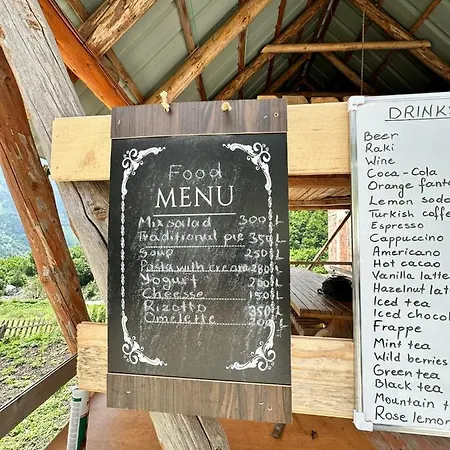 Food
MENU
Mix salad 300 L
Traditional pie 350 L
Soup 250 L
Pasta with cream 280 L
Yogurt 200 L
Cheesse 150 L
Rizotto 350 L
Omelette 200 L
DRINK
Beer
Raki
Wine
Coca - Cola
Orange fanta
Lemon soda
Turkish coffe
Espresso
Cappuccino
Americano
Hot cacao
Vanilla latte
Hazelnut latte
Iced tea
Iced chocol
Frappe
Mint tea
Wild berries
Green tea
Black tea
Mountain t
Rose lemon